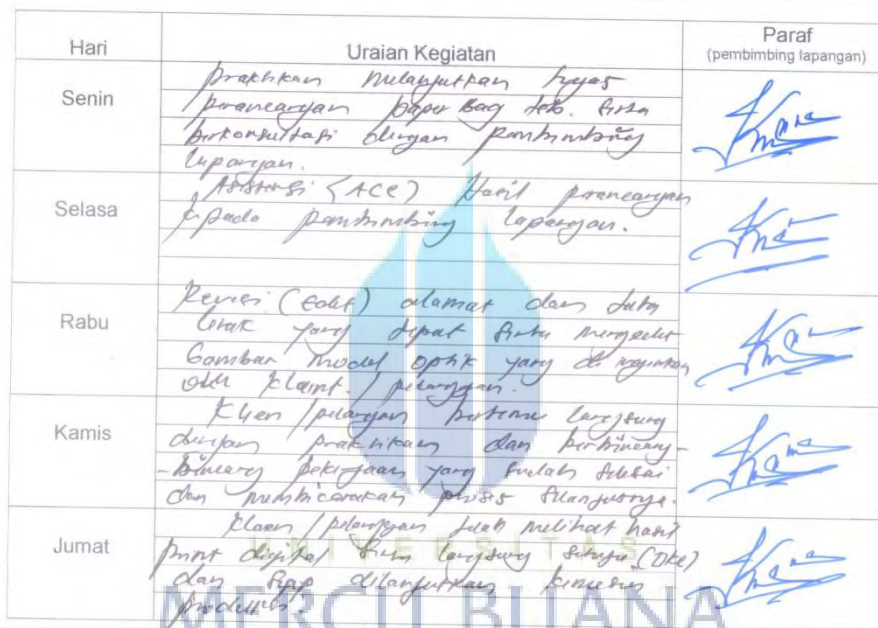 Hari Uraian Kegiatan Paraf
(pembimbing lapangan)
Senin
praktikan melanjutkan tugas
perancangan paper Bag dan. serta
berkonsultasi dengan pembimbing
lapangan.
Selasa
Asistensi (ACC) Hasil perancangan
kepada pembimbing lapangan.
Rabu
Revisi (Edit) alamat dan
letak yang tepat serta mengedit
Gambar model optik yang di inginkan
oleh klaint / pelanggan.
Kamis
klien / pelanggan bertemu langsung
dengan praktikan dan berbincang-
-bincang pekerjaan yang sudah selesai
dan membicarakan proses selanjutnya.
Jumat
klaen / pelanggan melihat hasil
print digital serta langsung setuju (Oke)
dan siap dilanjutkan kemesin
produksi.
UNIVERSITAS
MERCU BUANA